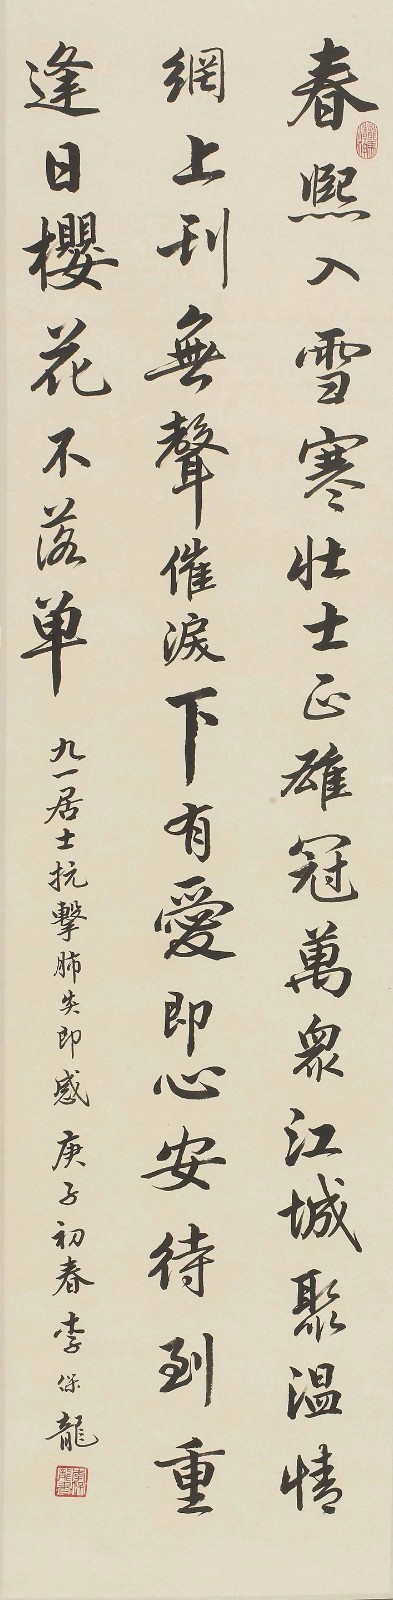 春熙入雪寒壯士正雄冠萬衆江城聚温情
網上刊無聲催淚下有愛即心安待到重
逢日櫻花不落单
九一居士抗擊肺炎即感 庚子初春 李保龍